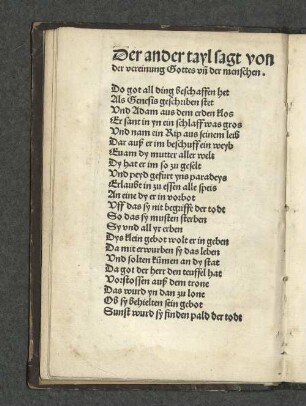 Der ander tayl sagt von
der vereinung Gottes vñ der menschen.
Do got all ding beschaffen het
Als Genesis geschriben stet
Vnd Adam aus dem erden klos
Er sant in yn ein schlaff was gros
Vnd nam ein Rip aus seinem leib
Dar auß er im beschuff ein weyb
Euam dy mutter aller welt
Dy hat er im so zu geselt
Vnd peyd gefurt yns paradeys
Erlaubt in zu essen alle speis
An eine dy er in vorbot
Vff das sy nit begriffe der todt
So das sy musten sterben
Sy vnd all yr erben
Dys klein gebot wolt er in geben
Da mit erwurben sy das leben
Vnd solten kümen an dy stat
Da got der herr den teuffel hat
Vorstossen auß dem trone
Das wurd yn dan zu lone
Ob sy behielten sein gebot
Sunst wurd sy finden pald der todt